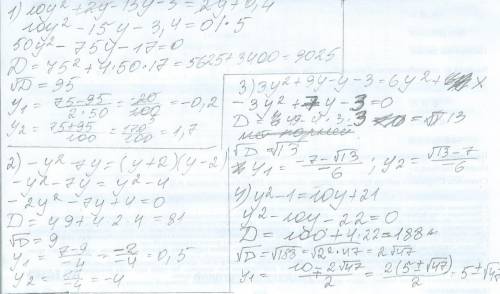 1) 10y² + 2y - 15y - 3 = 2y + 0,4
10y² - 15y - 3,4 = 0 | · 5
50y² - 75y - 17 = 0
D = 75² + 4·50·17 = 5625 + 3400 = 9025
√D = 95
y1 = (75-95)/(2·50) = -20/100 = -0,2
y2 = (75+95)/100 = 170/100 = 1,7
2) -y² - 7y = (y+2)(y-2)
-y² - 7y = y² - 4
-2y² - 7y + 4 = 0
D = 49 + 4·2·4 = 81
√D = 9
y1 = (7-9)/-4 = -2/-4 = 0,5
y2 = -4
3) 3y² + 9y - y - 3 = 6y² +
-3y² + 7y - 3 = 0
√D = √13
y1 = (-7-√13)/6 ; y2 = (√13-7)/6
y² - 1 = 10y + 21
y² - 10y - 22 = 0
D = 100 + 4·22 = 188
√D = √188 = √2²·47 = 2√47
y1 = (10 ∓ 2√47)/2 = 2(5±√47)/2 = 5±√47